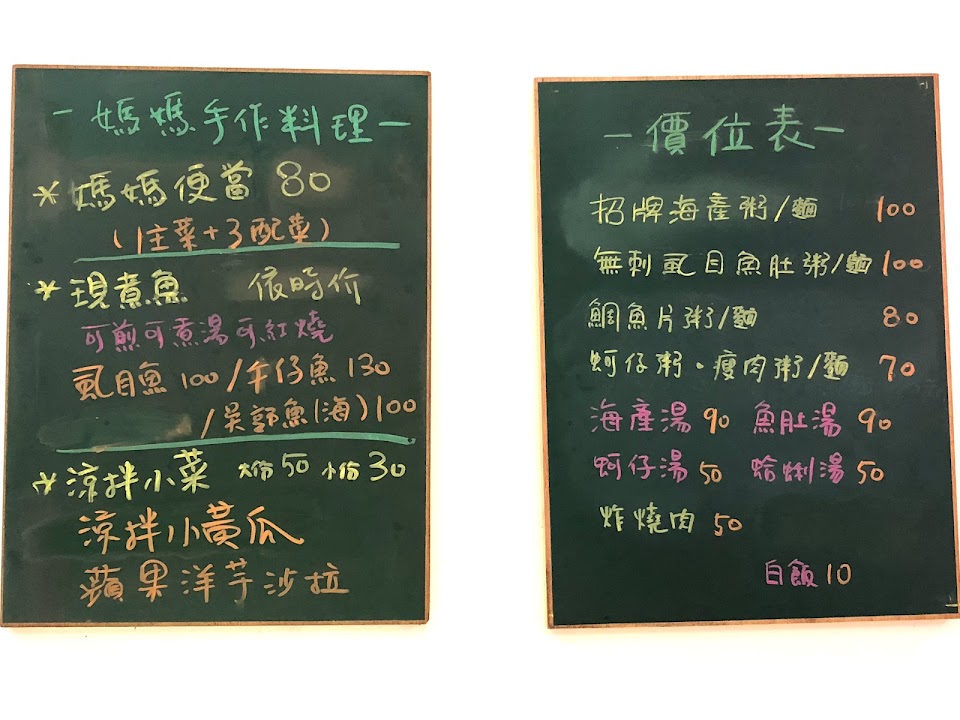 -媽媽手作料理-
*媽媽便當 80
(1主菜+3配菜)
*現煮魚 依時价
可煎可煮湯可紅燒
虱目魚100/午仔魚130
/吴郭魚(海)100
*涼拌小菜 大份50 小份30
涼拌小黃瓜
蘋果洋芋沙拉
-價位表-
招牌海產粥/麵 100
無刺虱目魚肚粥/麵 100
鯛魚片粥/麵 80
蚵仔粥。瘦肉粥/麵 70
海產湯 90 魚肚湯 90
蚵仔湯 50 蛤蜊湯 50
炸燒肉 50
白飯 10